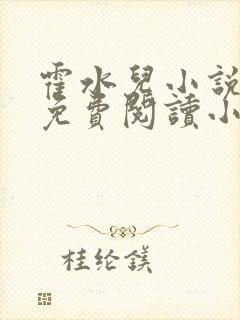 霍水兒小說
免費閱讀小
桂纶鎂